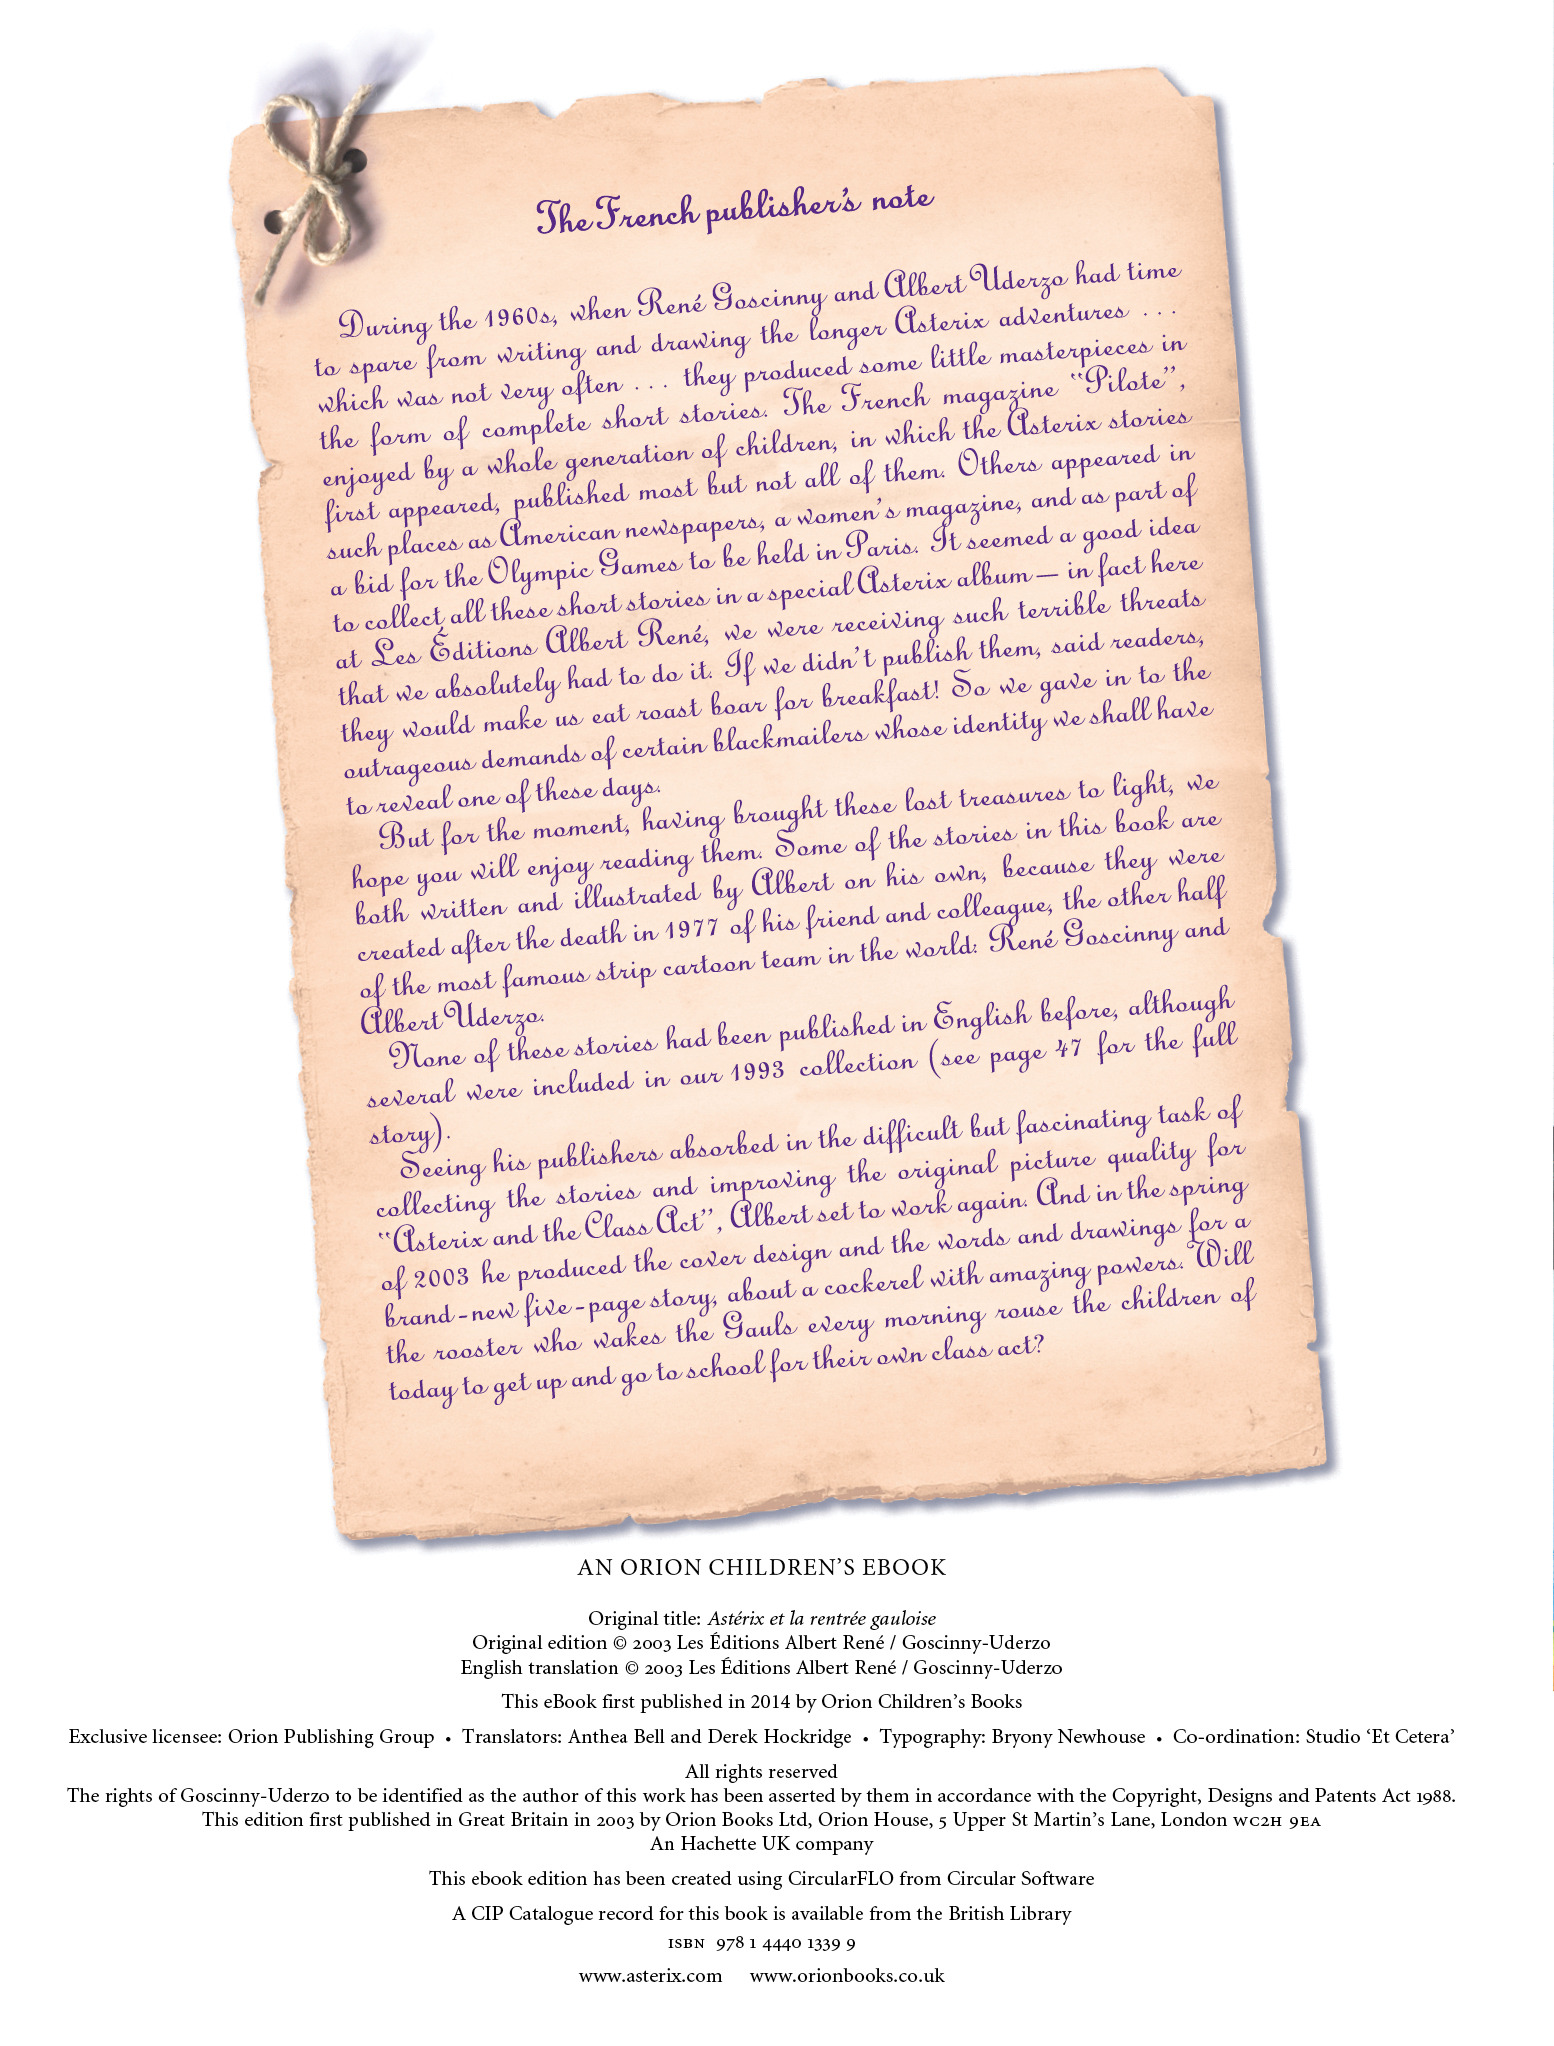 The French publisher's note
During the 1960s, when René Goscinny and Albert Uderzo had time
to spare from writing and drawing the longer Asterix adventures . . .
which was not very often . . . they produced some little masterpieces in
the form of complete short stories. The French magazine “Pilote”,
enjoyed by a whole generation of children, in which the Asterix stories
first appeared, published most but not all of them. Others appeared in
such places as American newspapers, a women's magazine, and as part of
a bid for the Olympic Games to be held in Paris. It seemed a good idea
to collect all these short stories in a special Asterix album — in fact here
at Les Éditions Albert René, we were receiving such terrible threats
that we absolutely had to do it. If we didn't publish them, said readers,
they would make us eat roast boar for breakfast! So we gave in to the
outrageous demands of certain blackmailers whose identity we shall have
to reveal one of these days.
But for the moment, having brought these lost treasures to light, we
hope you will enjoy reading them. Some of the stories in this book are
both written and illustrated by Albert on his own, because they were
created after the death in 1977 of his friend and colleague, the other half
of the most famous strip cartoon team in the world: René Goscinny and
Albert Uderzo.
None of these stories had been published in English before, although
several were included in our 1993 collection (see page 47 for the full
story).
Seeing his publishers absorbed in the difficult but fascinating task of
collecting the stories and improving the original picture quality for
“Asterix and the Class Act”, Albert set to work again. And in the spring
of 2003 he produced the cover design and the words and drawings for a
brand-new five-page story, about a cockerel with amazing powers. Will
the rooster who wakes the Gauls every morning rouse the children of
today to get up and go to school for their own class act?
AN ORION CHILDREN'S EBOOK
Original title: Astérix et la rentrée gauloise
Original edition © 2003 Les Éditions Albert René / Goscinny-Uderzo
English translation © 2003 Les Éditions Albert René / Goscinny-Uderzo
This eBook first published in 2014 by Orion Children's Books
Exclusive licensee: Orion Publishing Group • Translators: Anthea Bell and Derek Hockridge • Typography: Bryony Newhouse • Co-ordination: Studio ‘Et Cetera’
All rights reserved
The rights of Goscinny-Uderzo to be identified as the author of this work has been asserted by them in accordance with the Copyright, Designs and Patents Act 1988.
This edition first published in Great Britain in 2003 by Orion Books Ltd, Orion House, 5 Upper St Martin's Lane, London WC2H 9EA
An Hachette UK company
This ebook edition has been created using CircularFLO from Circular Software
A CIP Catalogue record for this book is available from the British Library
ISBN 978 1 4440 1339 9
www.asterix.com www.orionbooks.co.uk